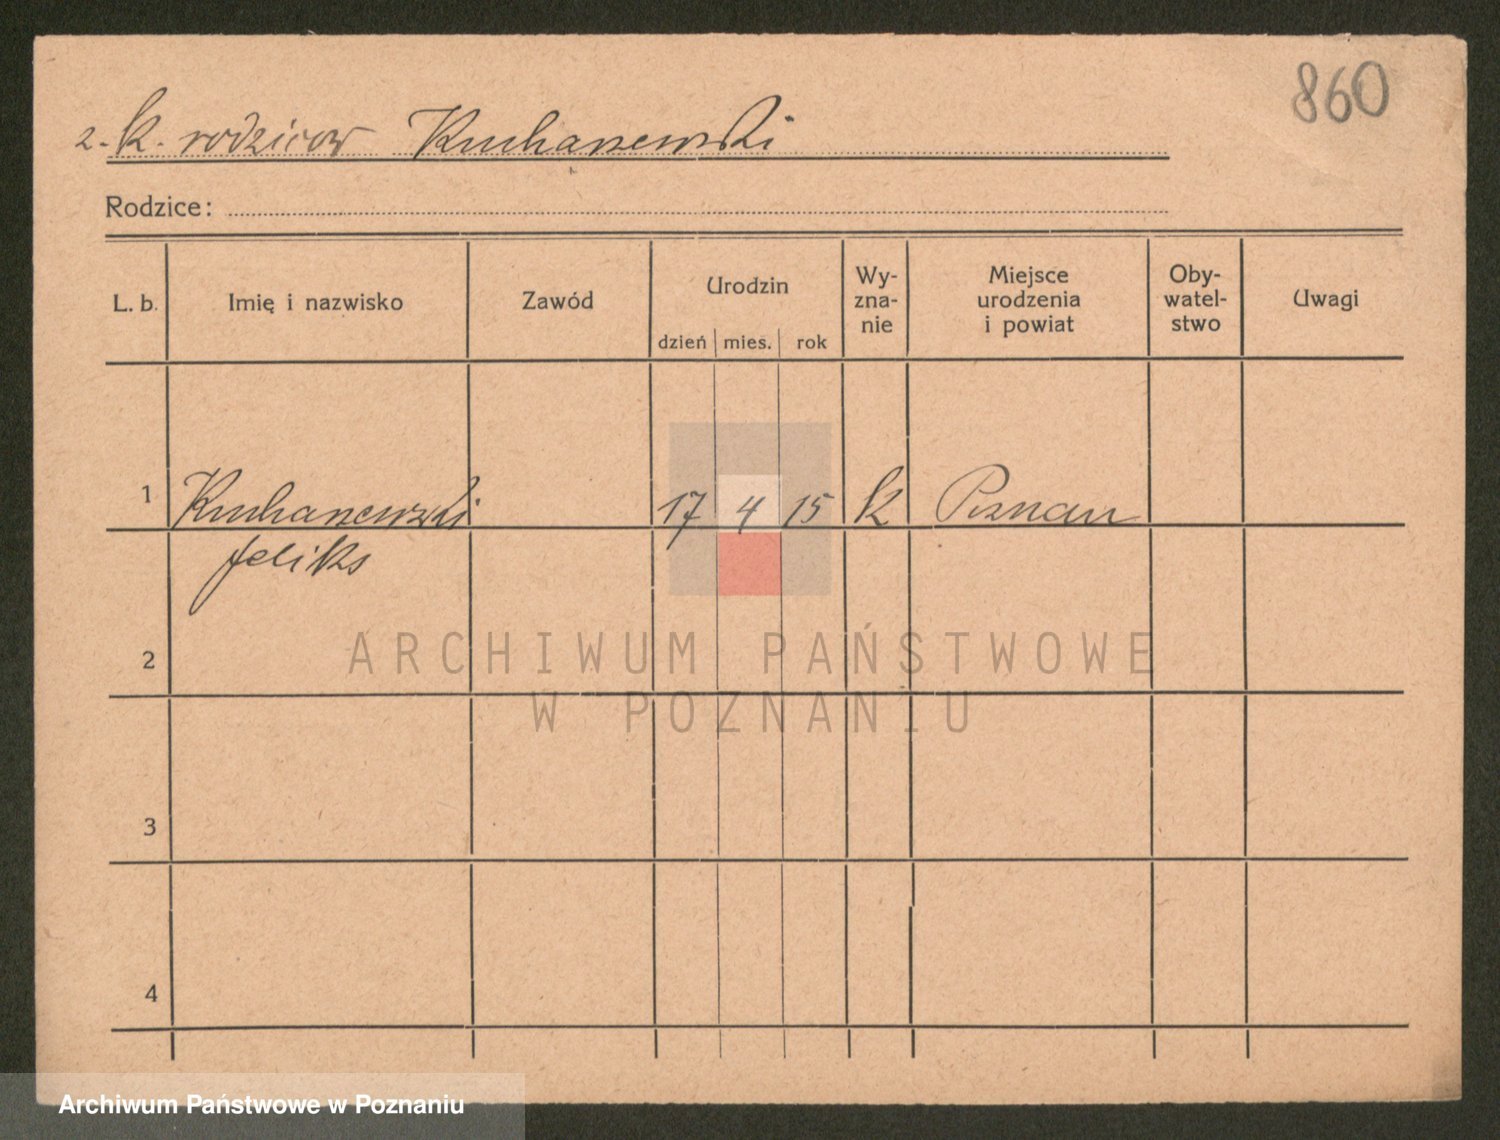 860
z. k. rodziców Kucharzewski
Rodzice:
L. b. Imię i nazwisko Zawód Urodzin dzień mies. rok Wy-zna-nie Miejsce urodzenia i powiat Oby-watel-stwo Uwagi
1 Kucharzewski 17 4 15 k Poznań
Feliks
2
3
4
ARCHIWUM PAŃSTWOWE
W POZNANIU
Archiwum Państwowe w Poznaniu